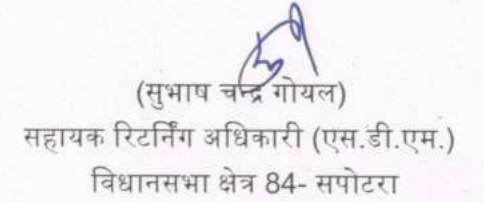 (सुभाष चन्द्र गोयल)
सहायक रिटर्निंग अधिकारी (एस.डी.एम.)
विधानसभा क्षेत्र 84- सपोटरा